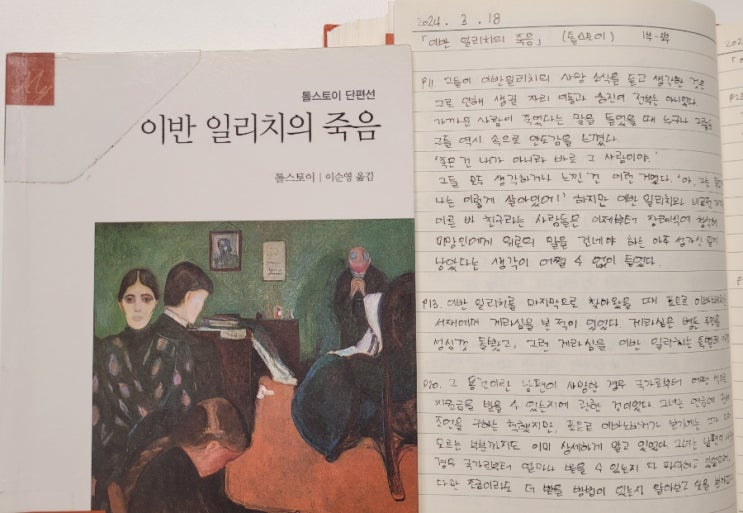 My
톨스토이 단편선
이반 일리치의 죽음
톨스토이 | 이순영 옮김
2024. 3. 18
「이반 일리치의 죽음」 (톨스토이)
P11 그들이 이반 일리치의 사망 소식을 듣고 생각한 것은
그로 인해 생길 자리 이동과 승진이 전부는 아니었다.
가까운 사람이 죽었다는 말을 들었을 때 누구나 그렇듯
그들 역시 속으로 안도감을 느꼈다.
'죽은 건 내가 아니라 바로 그 사람이야.'
그들 모두 생각하거나 느낀 건 이런 거였다. '아, 그는
나는 이렇게 살아있어!' 하지만 이반 일리치와 비교적
이른바 친구라는 사람들은 이제부터 장례식에 참석해
미망인에게 위로의 말을 건네야 하는 아주 성가신 일이
남았다는 생각이 어쩔 수 없이 들었다.
P13. 이반 일리치를 마지막으로 찾아왔을 때 표트르
서재에서 게라심을 본 적이 있었다. 게라심은
성심껏 돌봤고, 그런 게라심을 이반 일리치는
P20. 그 용건이란 남편이 사망한 경우 국가로부터 어떤 식으로
지원금을 받을 수 있는지에 관한 것이었다. 그녀는 연금에
조언을 구하는 척했지만, 표트르 이바노비치가 보기에는
모르는 부분까지도 이미 상세하게 알고 있었다. 그녀는 남편이
경우 국가로부터 얼마나 받을 수 있는지 다 파악하고 있었으며,
다만 조금이라도 더 받을 방법이 있는지 알아보고